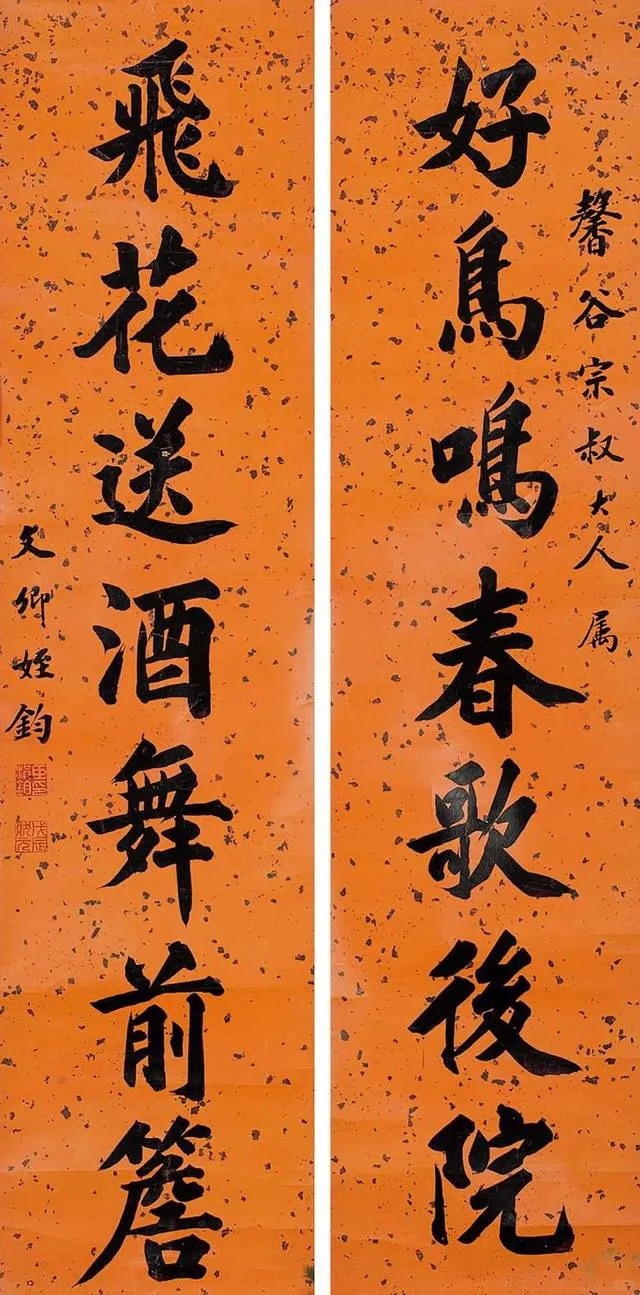 馨谷宗叔大人 属
好鳥鳴春歌後院
飛花送酒舞前簷
文卿姪鈞
戊辰狀元